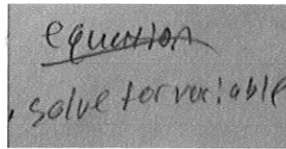 equation
, solve for variable